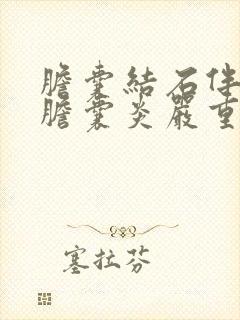 膽囊結石伴
膽囊炎嚴重
塞拉芬